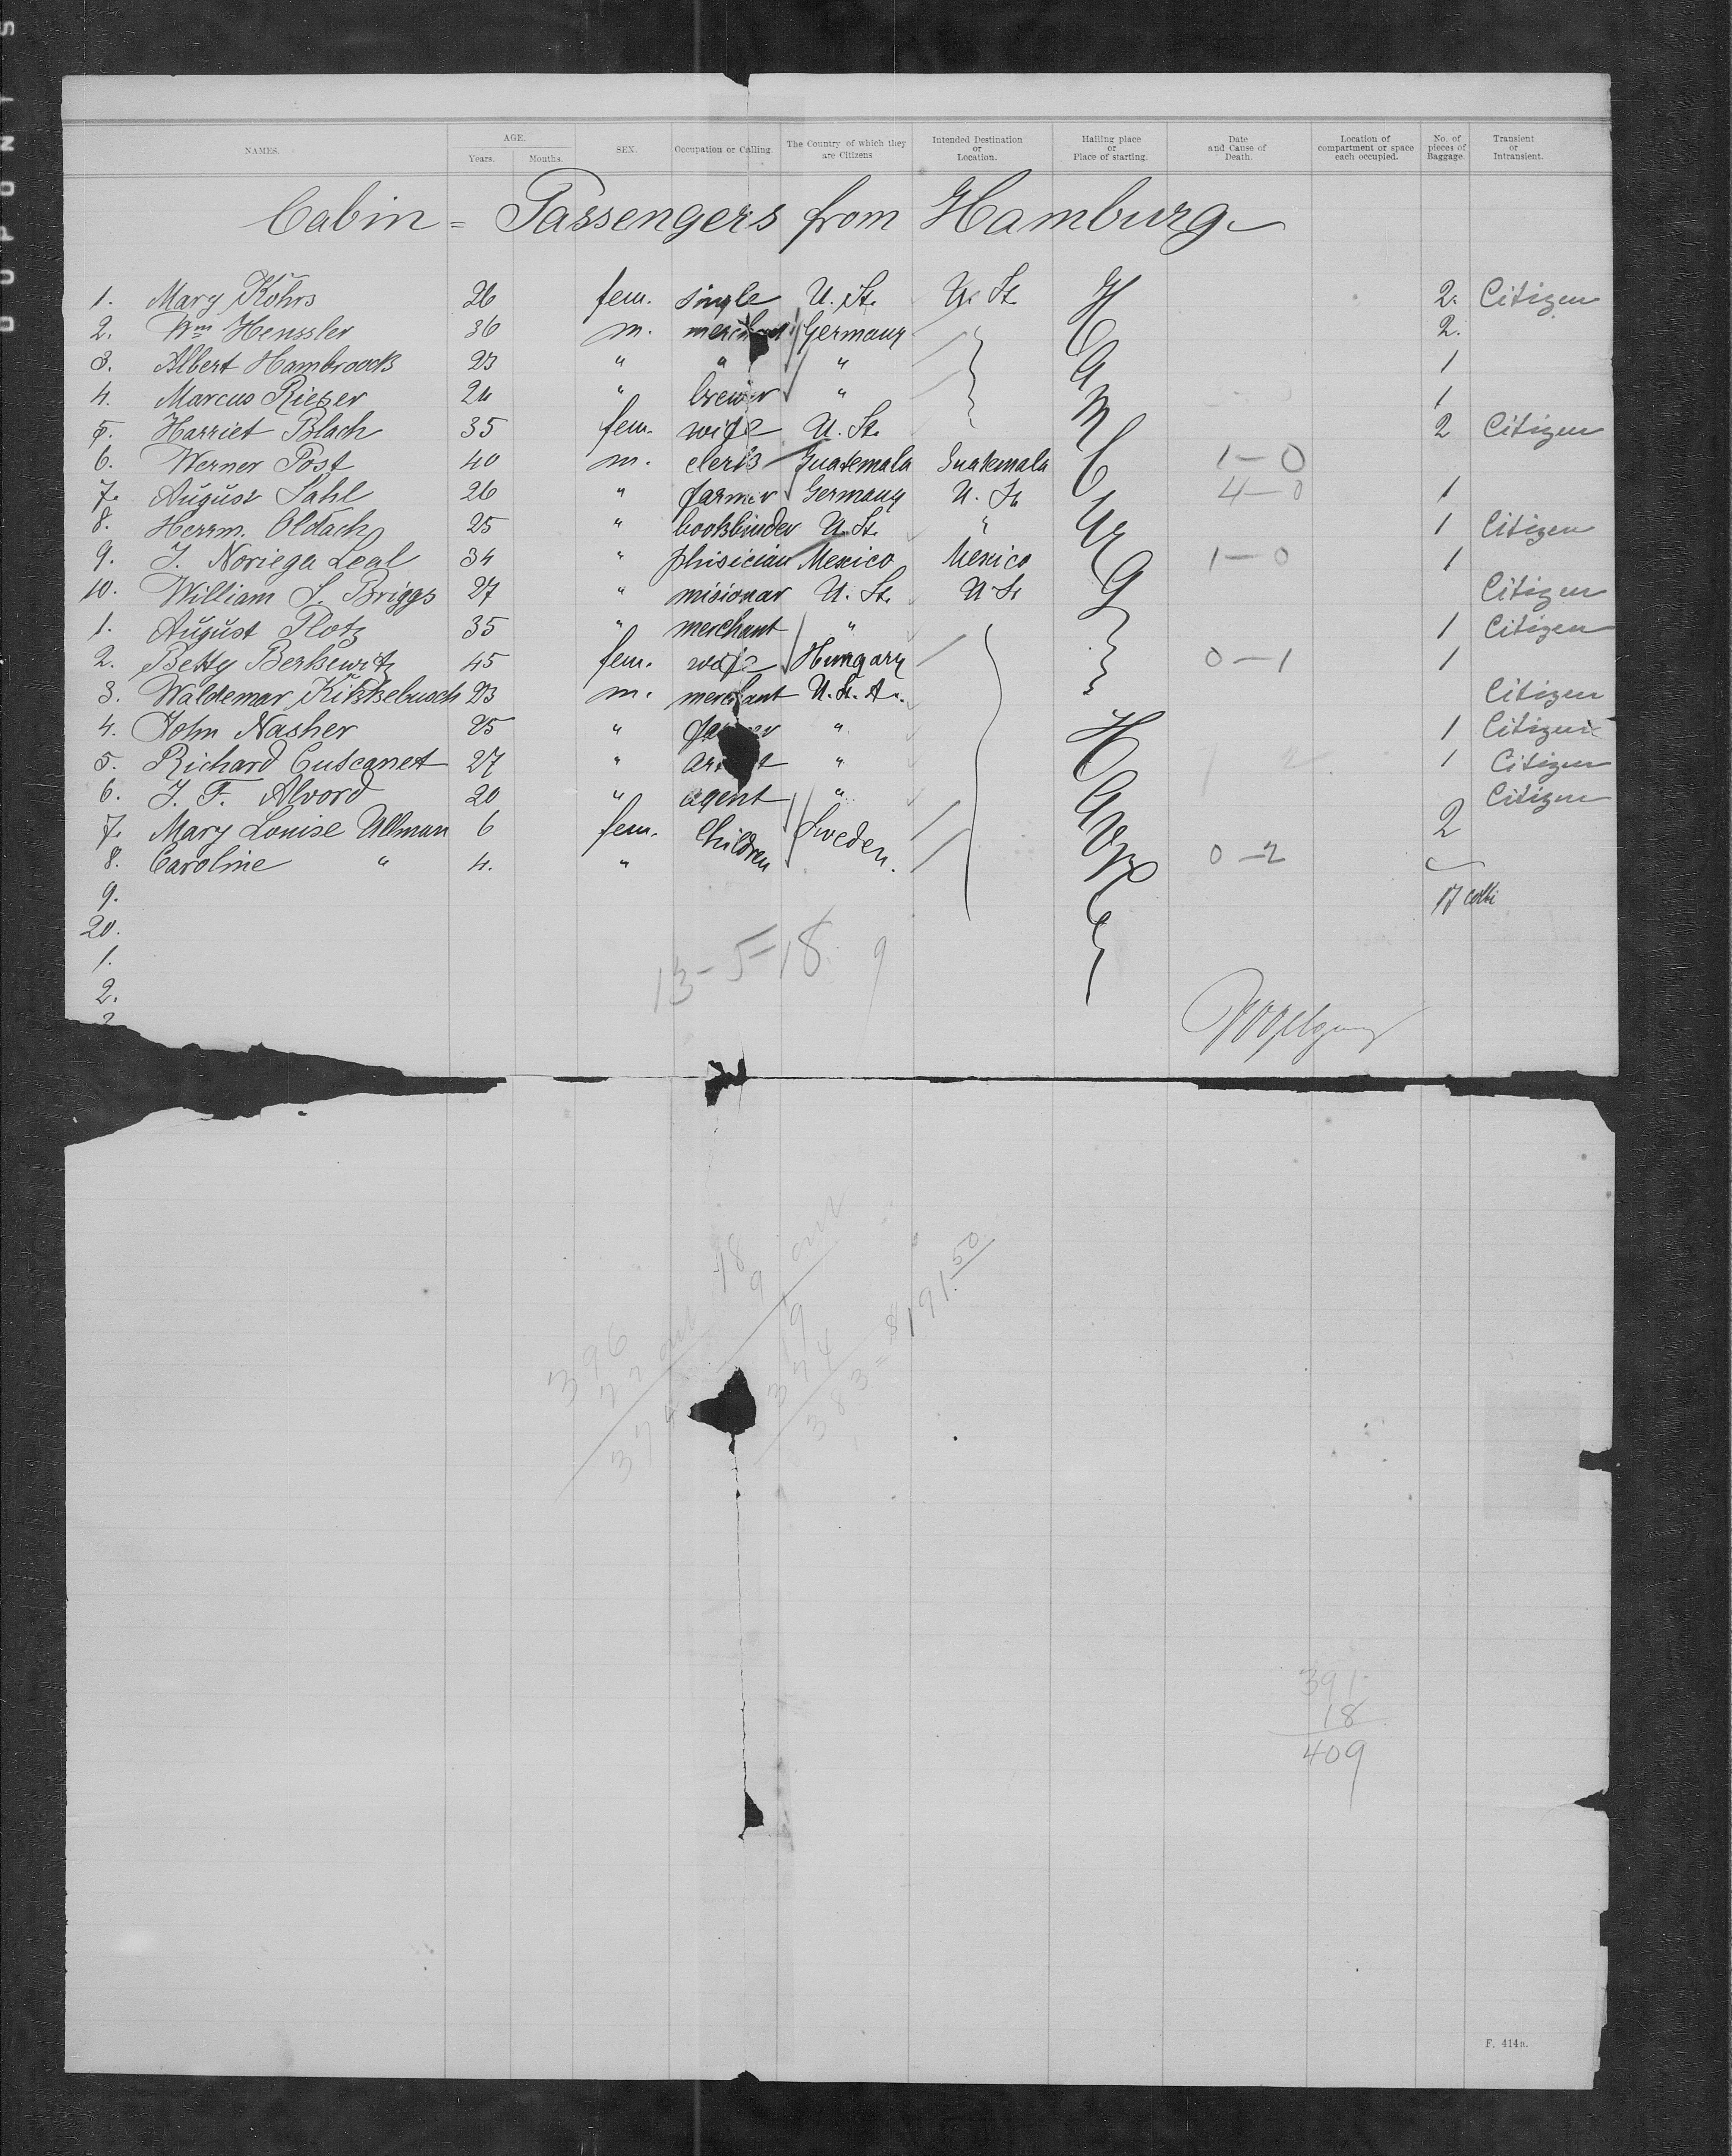 DUPONT S
NAMES. AGE. Years. Months. SEX. Occupation or Calling. The Country of which they are Citizens Intended Destination or Location. Hailing place or Place of starting. Date and Cause of Death. Location of compartment or space each occupied. No. of pieces of Baggage. Transient or Intransient.
Cabin = Passengers from Hamburg.
1. Mary Kohrs 26 fem. single U. St. U. St. 2. Citizen
2. Wm Henssler 36 m. merchant Germany 2.
3. Albert Hambroock 23 " " " 1
4. Marcus Rieser 24 " brewer " 1
5. Harriet Blach 35 fem. wife U. St. 2 Citizen
6. Werner Post 40 m. clerk Guatemala Guatemala 1-0
7. August Sahl 26 " farmer Germany U. St. 4-0 1
8. Herrm. Oldach 25 " bookbinder U. St. " 1 Citizen
9. J. Noriega Leal 34 " phisician Mexico Mexico 1-0 1
10. William S. Briggs 27 " misionar U. St. U. St. Citizen
1. August Plotz 35 " merchant " 1 Citizen
2. Betty Berkewitz 45 fem. wife Hungary 0-1 1
3. Waldemar Kikkebusch 23 m. merchant U. St. A. Citizen
4. John Nasher 25 " " 1 Citizen
5. Richard Cuscanet 27 " " 1 Citizen
6. J. F. Alvord 20 " agent " Citizen
7. Mary Louise Ullman 6 fem. Children Sweden. 2
8. Caroline " 4. " 0-2
9. 17 colli
20.
1.
2.
Hamburg
13-5-18 9
48
9
396
374
383 = $191.50
391
18
409
F. 414a.